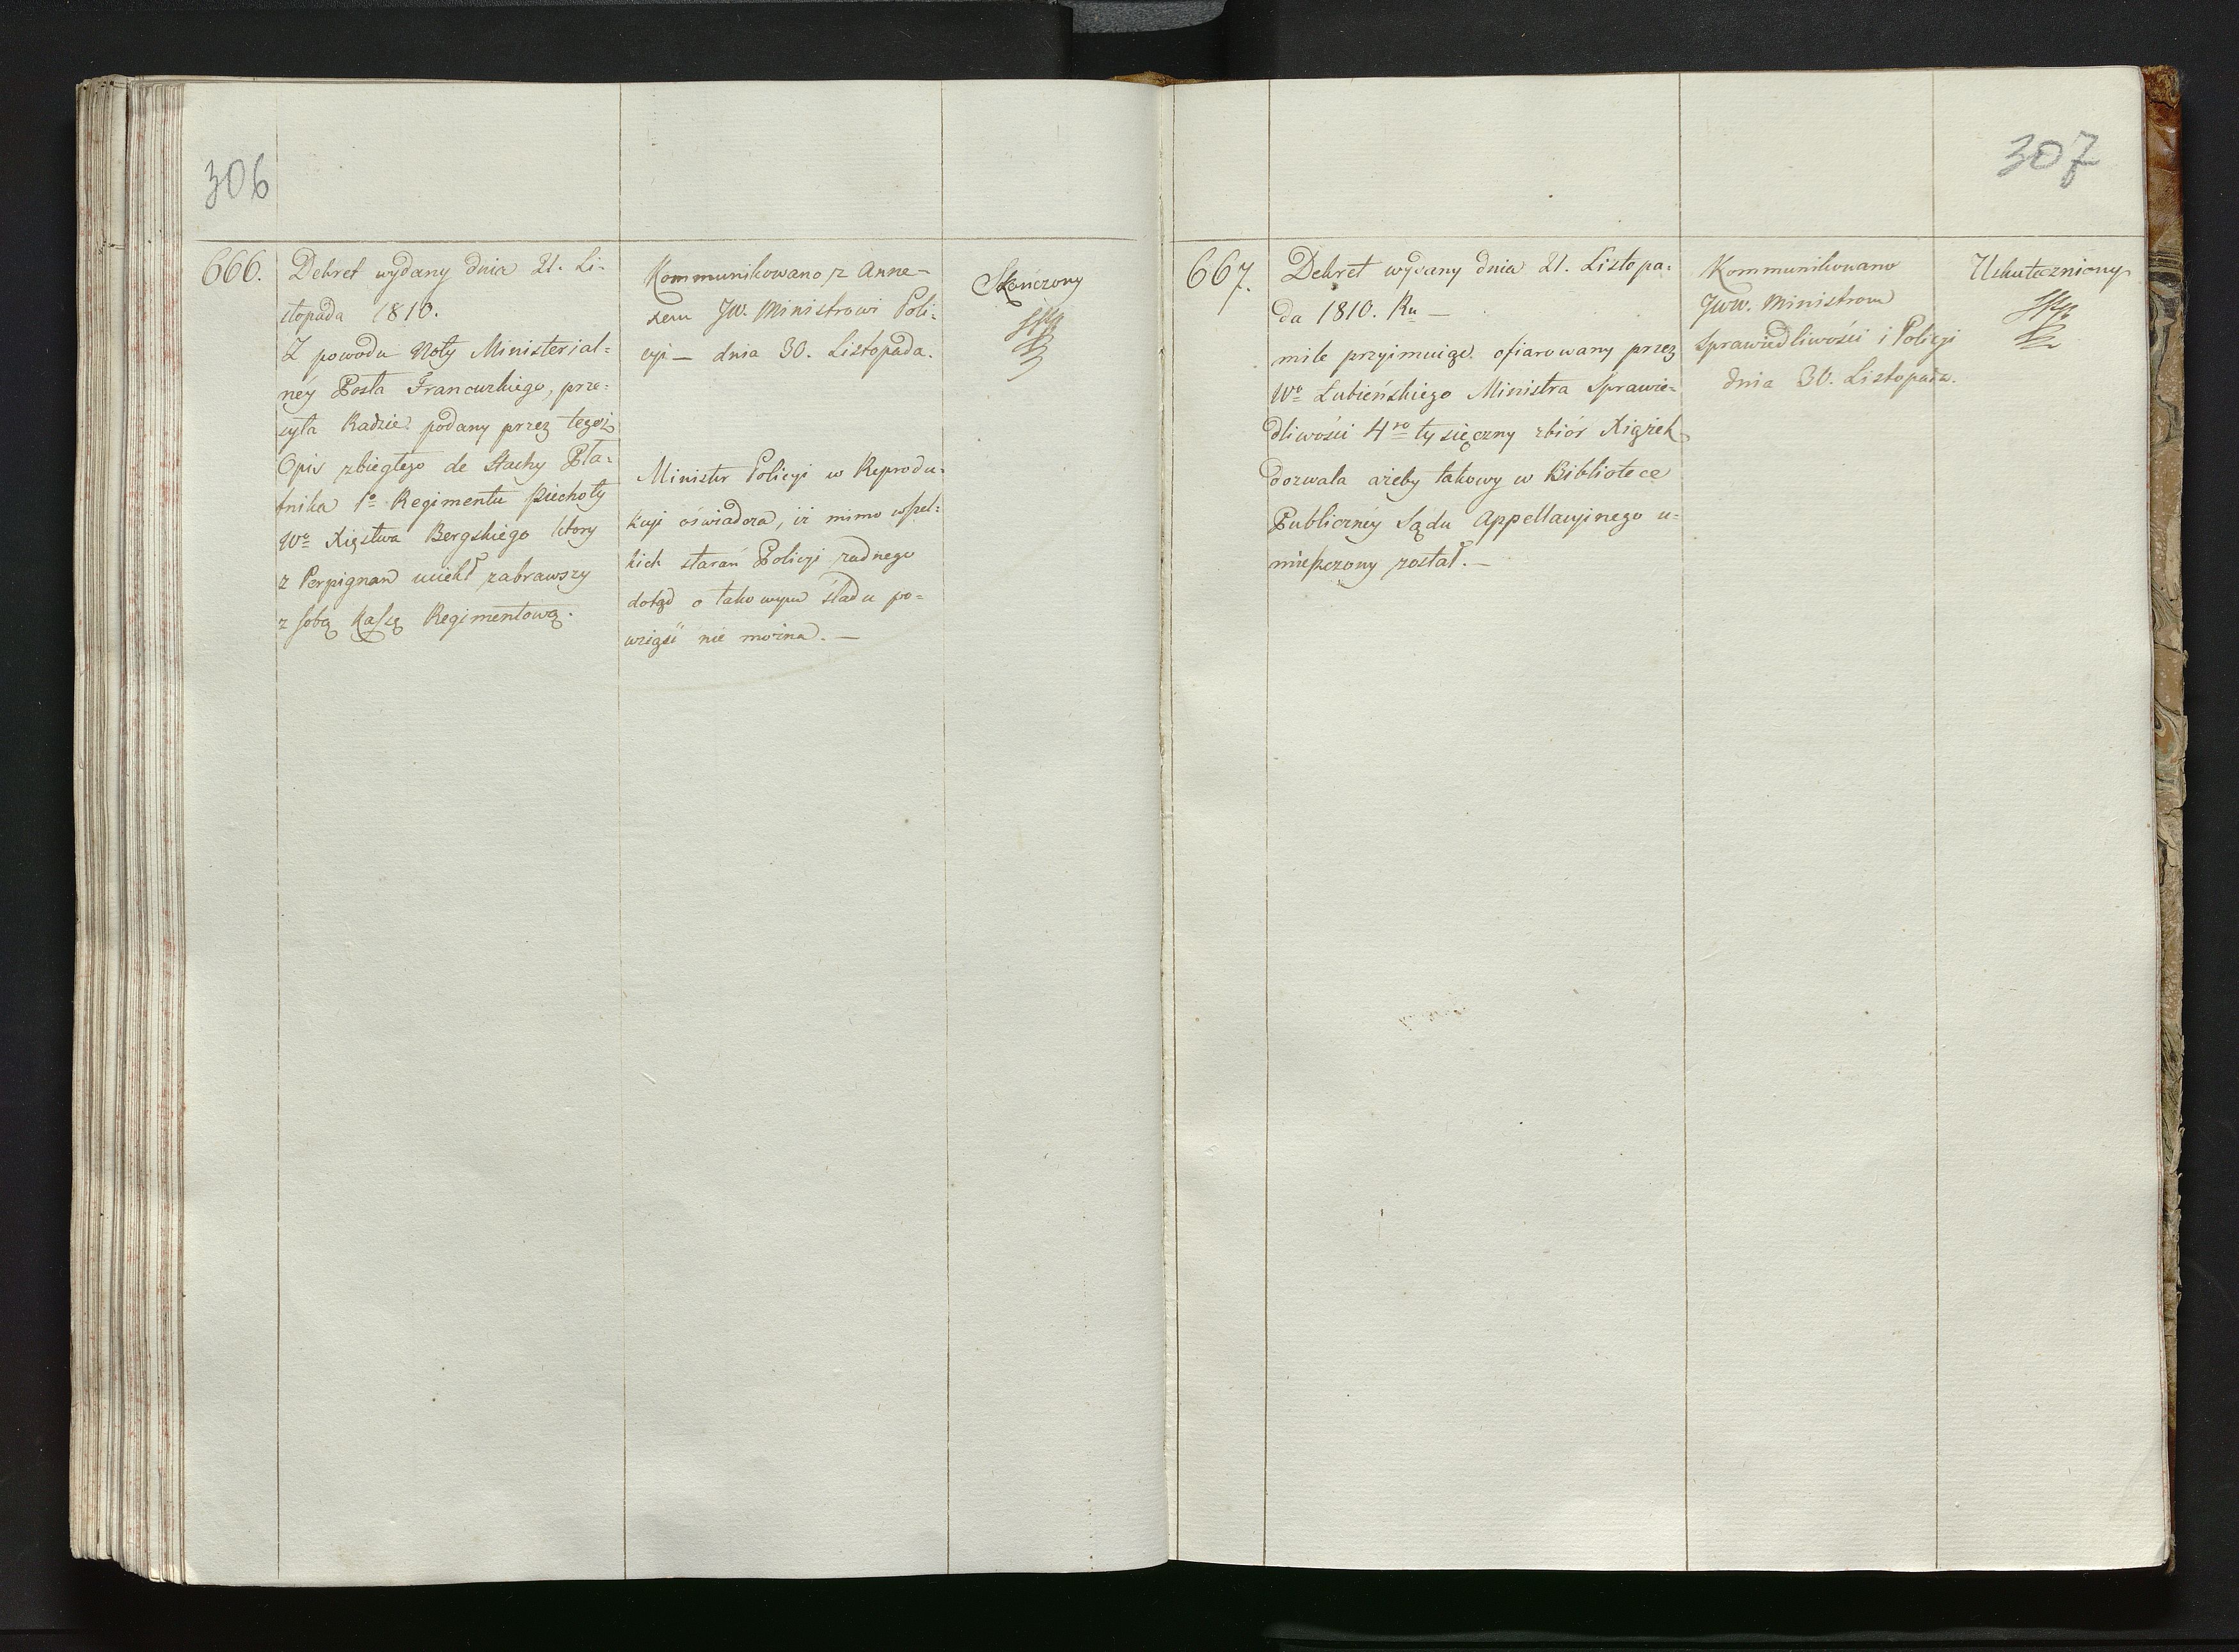 306
666.
Dekret wydany dnia 21. Li-
stopada 1810.
Z powodu Noty Ministerial-
néy Posła Francuzkiego, prze-
syła Radzie podany przez tegoż
Opis zbiegłego de Stachy Pła-
tnika 1o Regimentu Piechoty
Wo Xięstwa Bergskiego ktory
z Perpignan uciekł zabrawszy
z sobą Kassę Regimentową.
Kommunikowano z Anne-
xem JW. Ministrowi Poli-
cyi — dnia 30. Listopada.
Minister Policyi w Reprodu-
kcyi oświadcza, iż mimo wszel-
kich starań Policyi żadnego
dotąd o takowym śladu po-
wziąść nie można. —
Skończony
307
667.
Dekret wydany dnia 21. Listopa-
da 1810. Ru —
mile przyimuiąc ofiarowany przez
Wo Łubieńskiego Ministra Sprawie-
dliwości 4ro tysięczny zbiór Xiążek
dozwala ażeby takowy w Bibliotece
Publicznéy Sądu Appellacyinego u-
mieszczony został. —
Kommunikowano
JWW. Ministrom
Sprawiedliwości i Policyi
dnia 30. Listopada.
Uskuteczniony